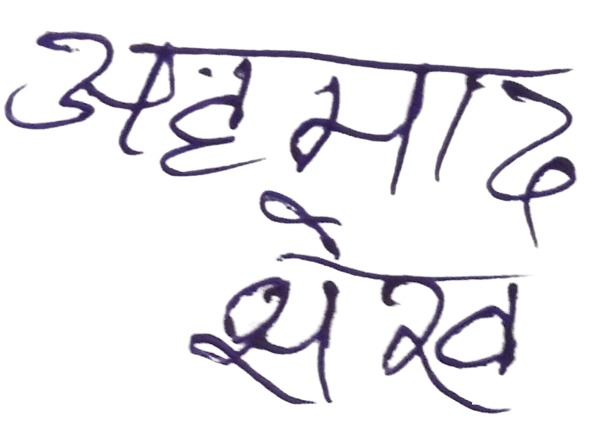 अहमाद
शेख